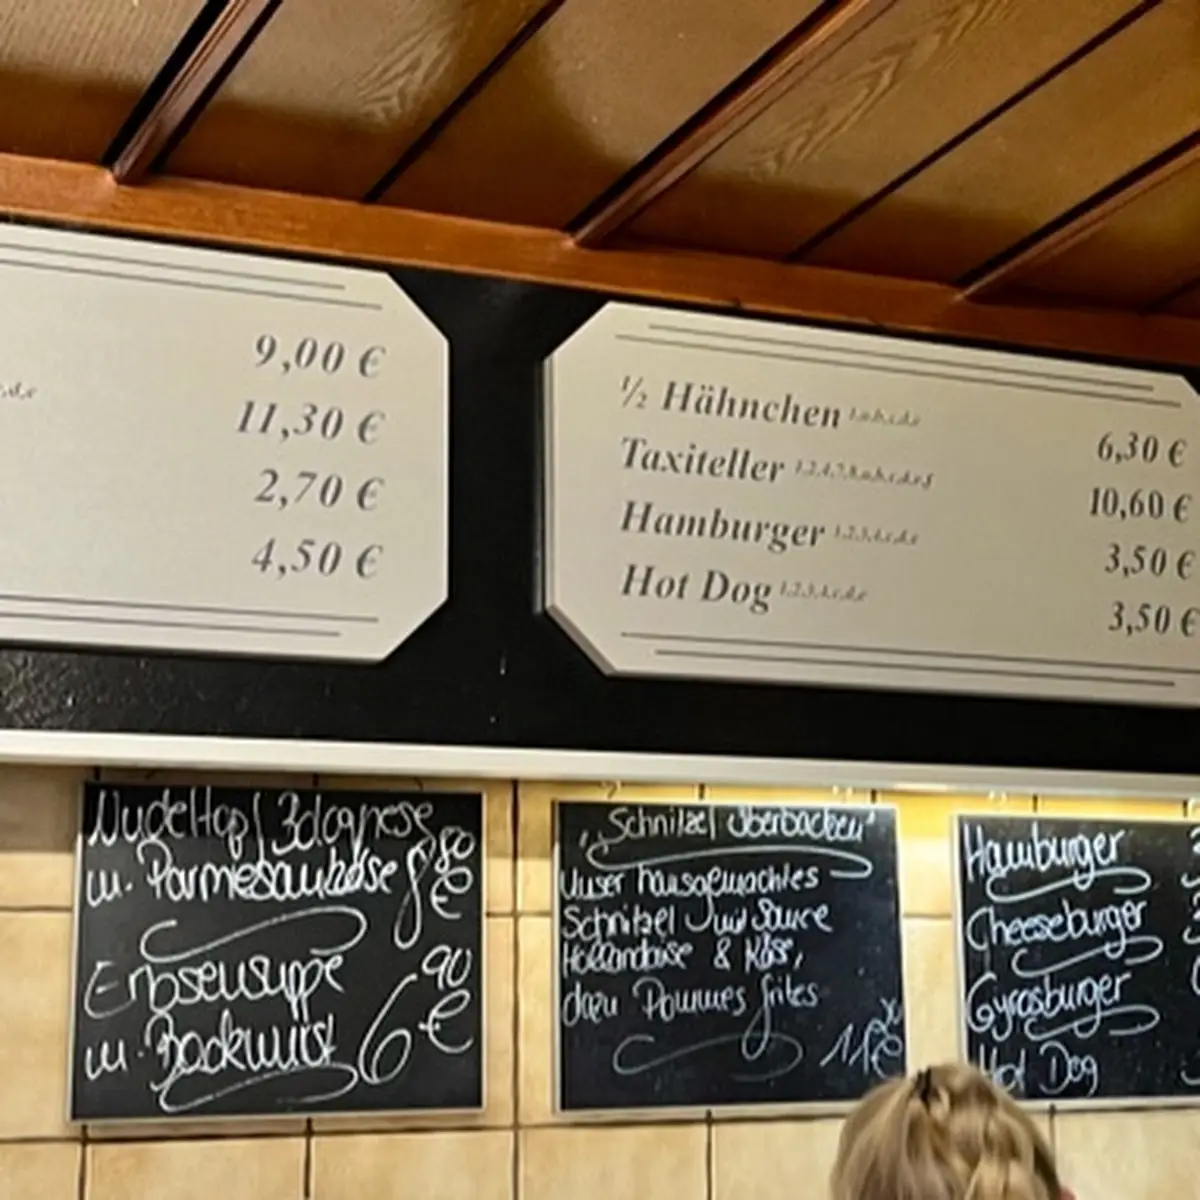 9,00 €
11,30 €
2,70 €
4,50 €
½ Hähnchen 6,30 €
Taxiteller 10,60 €
Hamburger 3,50 €
Hot Dog 3,50 €
Nudeltopf Bolognese
m. Parmesankäse 8,80 €
Erbsensuppe
m. Bockwurst 6,90 €
"Schnitzel überbacken"
Unser hausgemachtes
Schnitzel mit Sauce
Hollandaise & Käse,
dazu Pommes frites
Hamburger
Cheeseburger
Gyrosburger
Hot Dog